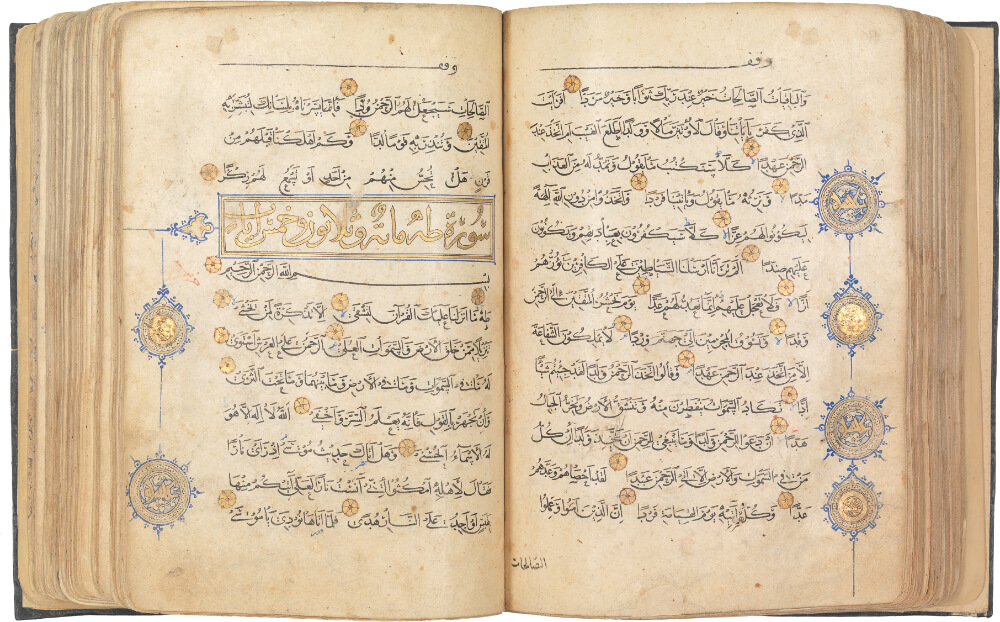 وقف
والباقيات الصالحات خير عند ربك ثوابا وخير مردا افرايت
الذي كفر باياتنا وقال لاوتين مالا وولدا اطلع الغيب ام اتخذ عند
الرحمن عهدا كلا سنكتب ما يقول ونمد له من العذاب
مدا ونرثه ما يقول وياتينا فردا واتخذوا من دون الله الهة
ليكونوا لهم عزا كلا سيكفرون بعبادتهم ويكونون
عليهم ضدا الم تر انا ارسلنا الشياطين على الكافرين تؤزهم
ازا فلا تعجل عليهم انما نعد لهم عدا يوم نحشر المتقين الى الرحمن
وفدا ونسوق المجرمين الى جهنم وردا لا يملكون الشفاعة
الا من اتخذ عند الرحمن عهدا وقالوا اتخذ الرحمن ولدا لقد جئتم شيئا
ادا تكاد السموات يتفطرن منه وتنشق الارض وتخر الجبال
هدا ان دعوا للرحمن ولدا وما ينبغي للرحمن ان يتخذ ولدا ان كل
من في السموات والارض الا اتي الرحمن عبدا لقد احصاهم وعدهم
عدا وكلهم اتيه يوم القيامة فردا ان الذين امنوا وعملوا
الصالحات
وقف
الصالحات سيجعل لهم الرحمن ودا فانما يسرناه بلسانك لتبشر به
المتقين وتنذر به قوما لدا وكم اهلكنا قبلهم من
قرن هل تحس منهم من احد او تسمع لهم ركزا
سورة طه مائة وثلاثون وخمس ايات
بسم الله الرحمن الرحيم
طه ما انزلنا عليك القران لتشقى الا تذكرة لمن يخشى
تنزيلا ممن خلق الارض والسموات العلى الرحمن على العرش استوى
له ما في السموات وما في الارض وما بينهما وما تحت الثرى
وان تجهر بالقول فانه يعلم السر واخفى الله لا اله الا هو
له الاسماء الحسنى وهل اتاك حديث موسى اذ رأى نارا
فقال لاهله امكثوا اني انست نارا لعلي اتيكم منها
بقبس او اجد على النار هدى فلما اتاها نودي يا موسى